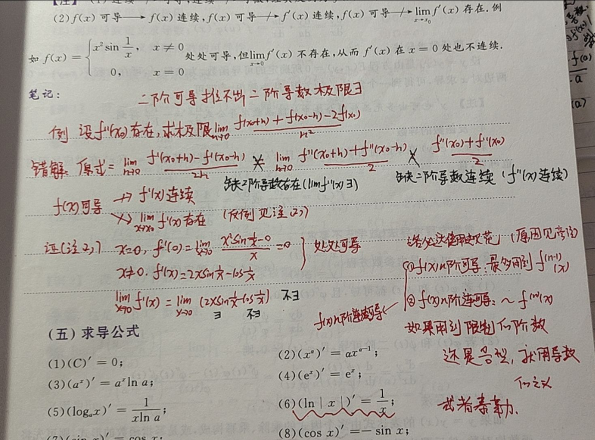 (2) f(x) 可导 ⟶ f(x) 连续, f(x) 可导 ⟶̸ f′(x) 连续, f(x) 可导 ⟶̸ lim_{x→x₀} f′(x) 存在. 例
如 f(x) = { x² sin 1/x, x ≠ 0
0, x = 0
处处可导, 但 lim_{x→0} f′(x) 不存在, 从而 f′(x) 在 x = 0 处也不连续.
笔记:
二阶可导推不出二阶导数极限∃
例 设 f″(x₀) 存在, 求极限 lim_{h→0} (f(x₀+h) + f(x₀-h) - 2f(x₀))/h²
错解 原式 = lim_{h→0} (f′(x₀+h) - f′(x₀-h))/2h ✕ lim_{h→0} (f″(x₀+h) + f″(x₀-h))/2 ✕ (f″(x₀) + f″(x₀))/2
缺二阶导数存在 (lim f″(x) ∃)
缺二阶导数连续 (f″(x) 连续)
f(x) 可导 ⇸ f′(x) 连续
⇸ lim_{x→x₀} f′(x) 存在 (反例见注2)
证(注2) x=0, f′(0) = lim_{x→0} (x² sin 1/x - 0)/x = 0
处处可导
x≠0, f′(x) = 2x sin 1/x - cos 1/x
lim_{x→0} f′(x) = lim_{x→0} (2x sin 1/x - cos 1/x) 不∃
∃ 不∃
洛必达使用规范 (原因见
① f(x) n阶可导: 最多用到 f^{(n-1)}(x)
② f(x) n阶连续可导: ~ f^{(n)}(x)
f(x) n阶连续可导
如果用到限制的阶数
还是 型, 就用导数
定义
或者泰勒.
(五) 求导公式
(1) (C)′ = 0;
(2) (xᵃ)′ = axᵃ⁻¹;
(3) (aˣ)′ = aˣ ln a;
(4) (eˣ)′ = eˣ;
(5) (logₐx)′ = 1/(x ln a);
(6) (ln | x |)′ = 1/x;
(7) (sin x)′ = cos x;
(8) (cos x)′ = − sin x;